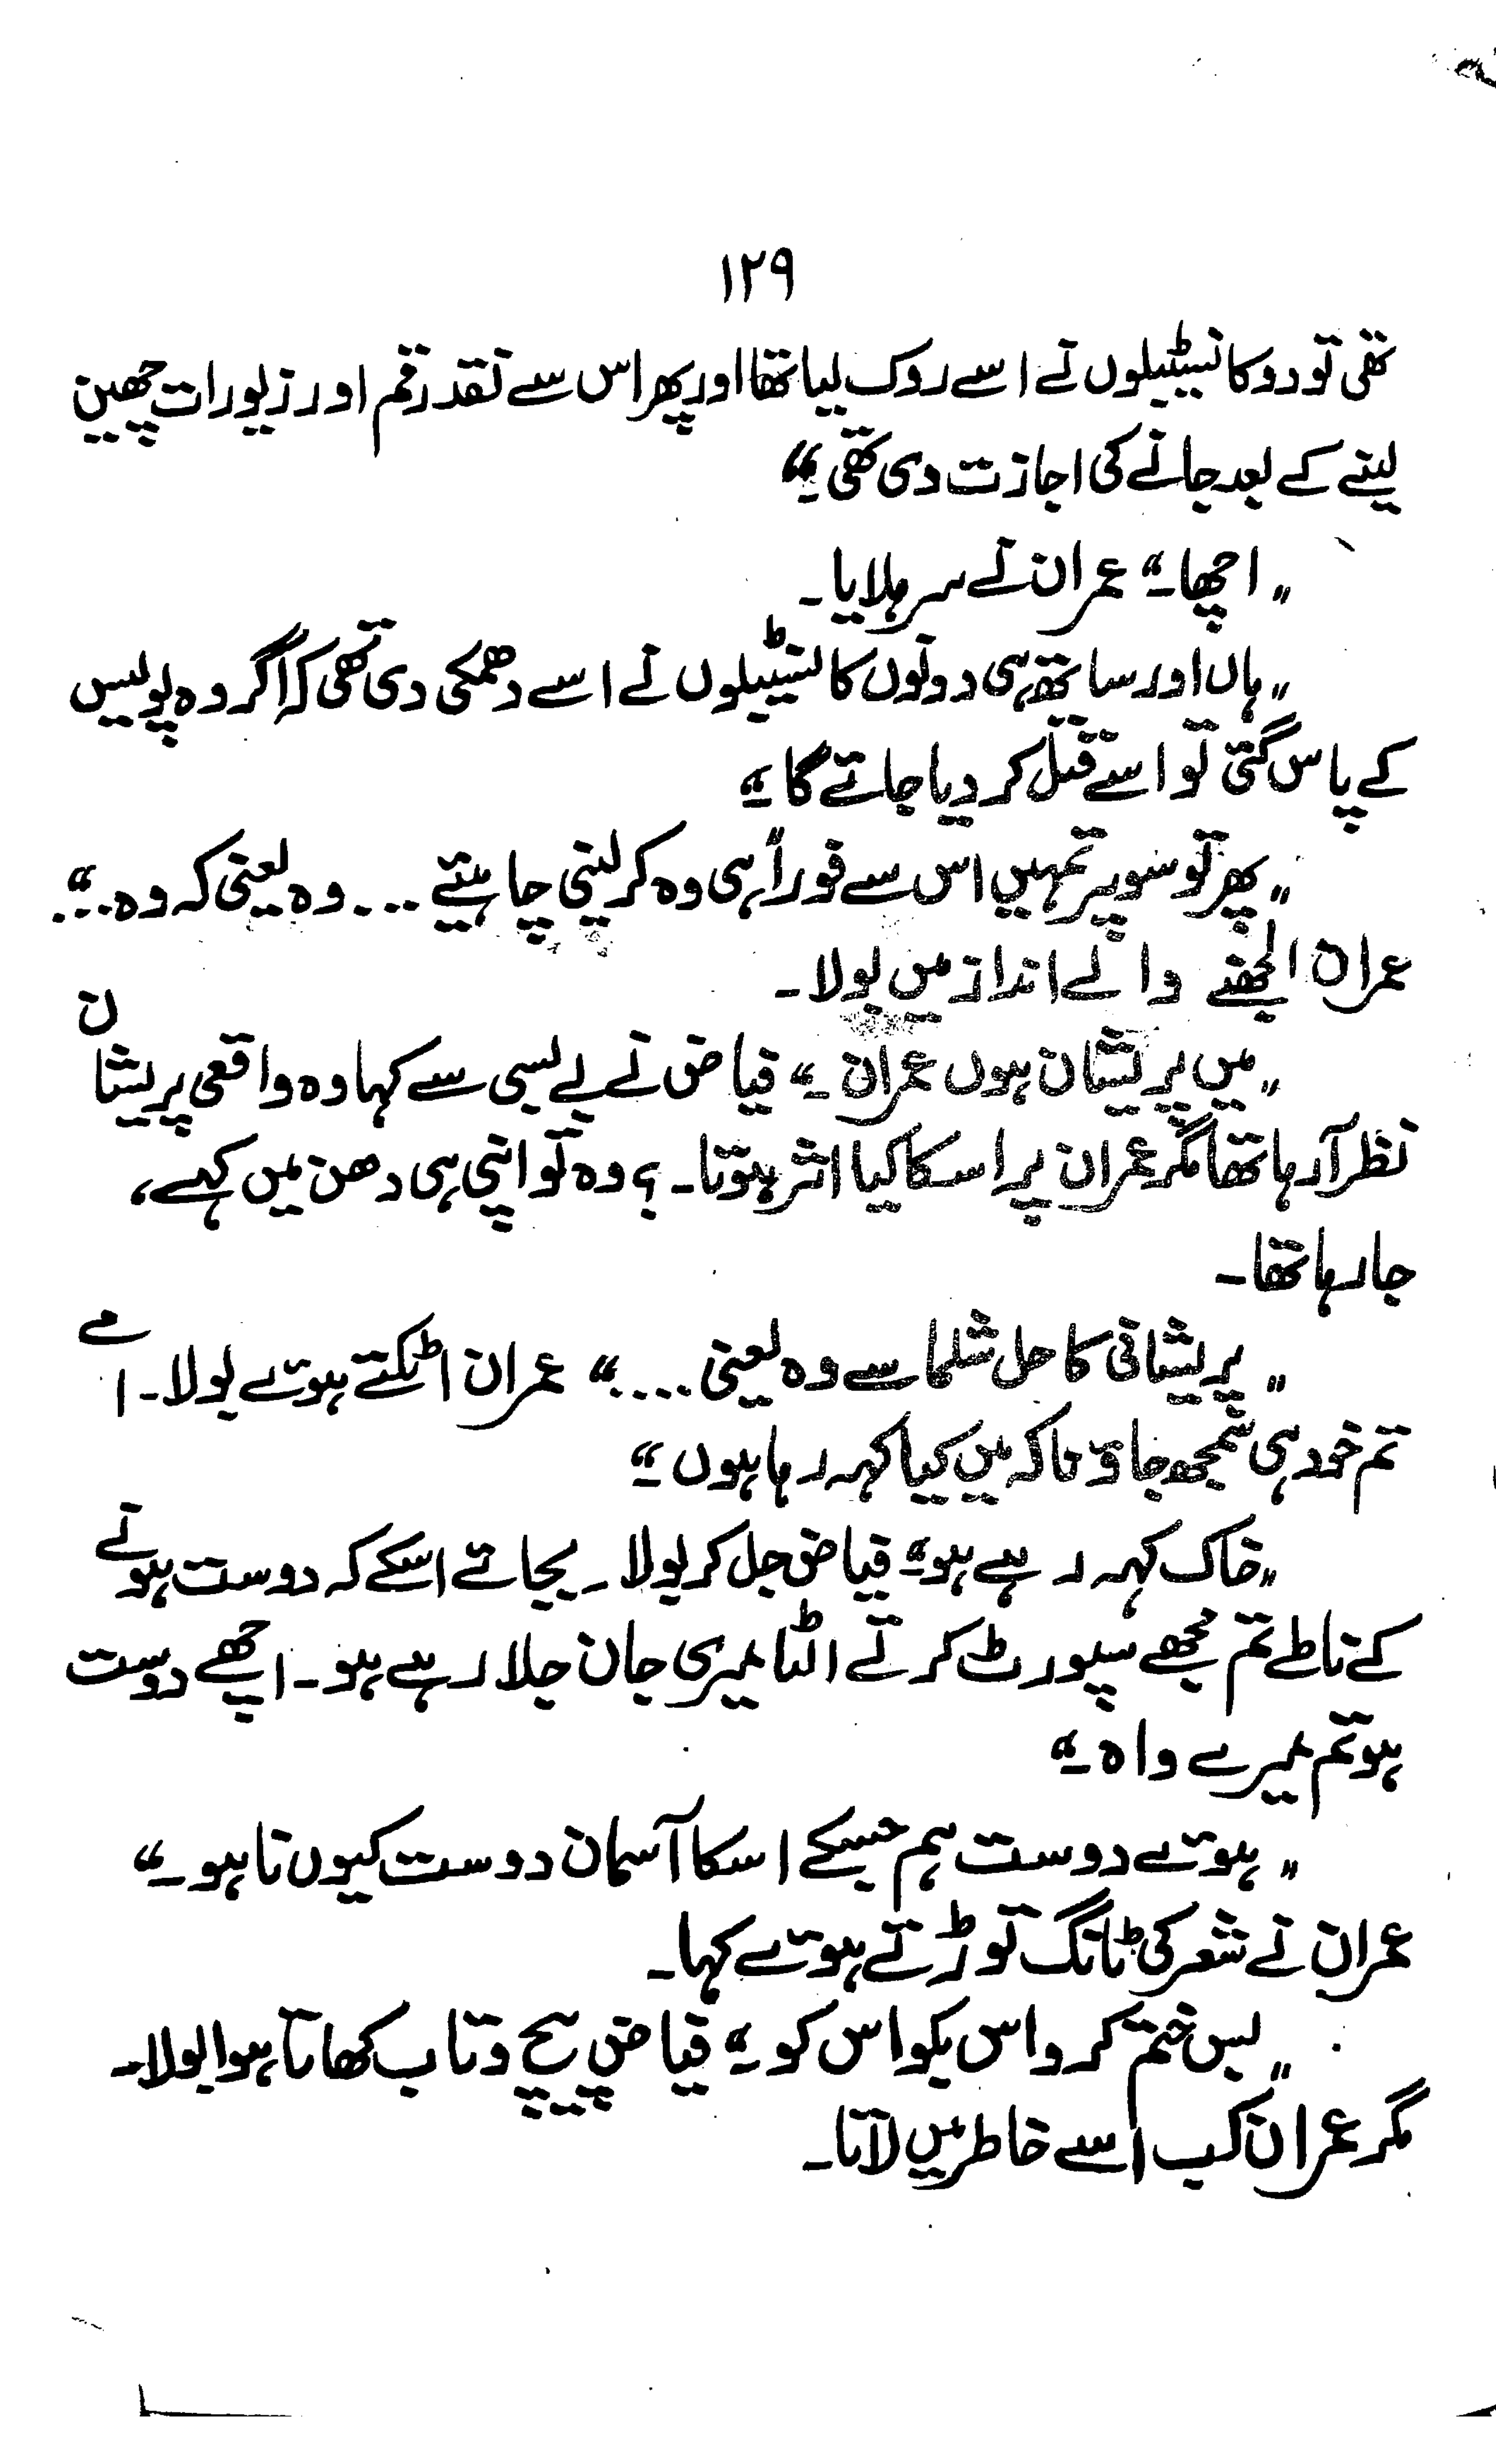 ۱۲۹
تھی تو دو کانسٹیبلوں نے اسے روک لیا تھا اور پھر اس سے نقد رقم اور زیورات چھین
لینے کے بعد جانے کی اجازت دی تھی۔“
”اچھا۔“ عمران نے سر ہلایا۔
”ہاں اور ساتھ ہی دونوں کانسٹیبلوں نے اسے دھمکی دی تھی کہ اگر وہ پولیس
کے پاس گئی تو اسے قتل کر دیا جائے گا۔“
”پھر تو سوپر تمہیں اس سے فوراً ہی وہ کر لینی چاہئے ۔۔۔ وہ یعنی کہ وہ ۔۔۔“
عمران الجھنے والے انداز میں بولا۔
”میں پریشان ہوں عمران۔“ فیاض نے بے بسی سے کہا وہ واقعی پریشان
نظر آ رہا تھا مگر عمران پر اسکا کیا اثر ہوتا۔ ؟ وہ تو اپنی ہی دھن میں کہے،
جا رہا تھا۔
”پریشانی کا حل شلما سے وہ یعنی ۔۔۔۔“ عمران اٹکتے ہوئے بولا۔ اے
تم خود ہی سمجھ جاؤ نا کہ میں کیا کہہ رہا ہوں۔“
”خاک کہہ رہے ہو۔“ فیاض جل کر بولا۔ بجائے اسکے کہ دوست ہونے
کے ناطے تم مجھے سپورٹ کرتے الٹا میری جان جلا رہے ہو۔ اچھے دوست
ہو تم میرے واہ۔“
”ہوئے دوست ہم جسکے اسکا آسمان دوست کیوں نا ہو۔“
عمران نے شعر کی ٹانگ توڑتے ہوئے کہا۔
”بس ختم کرو اس بکواس کو۔“ فیاض پیچ و تاب کھاتا ہوا بولا۔
مگر عمران کب اسے خاطر میں لاتا۔